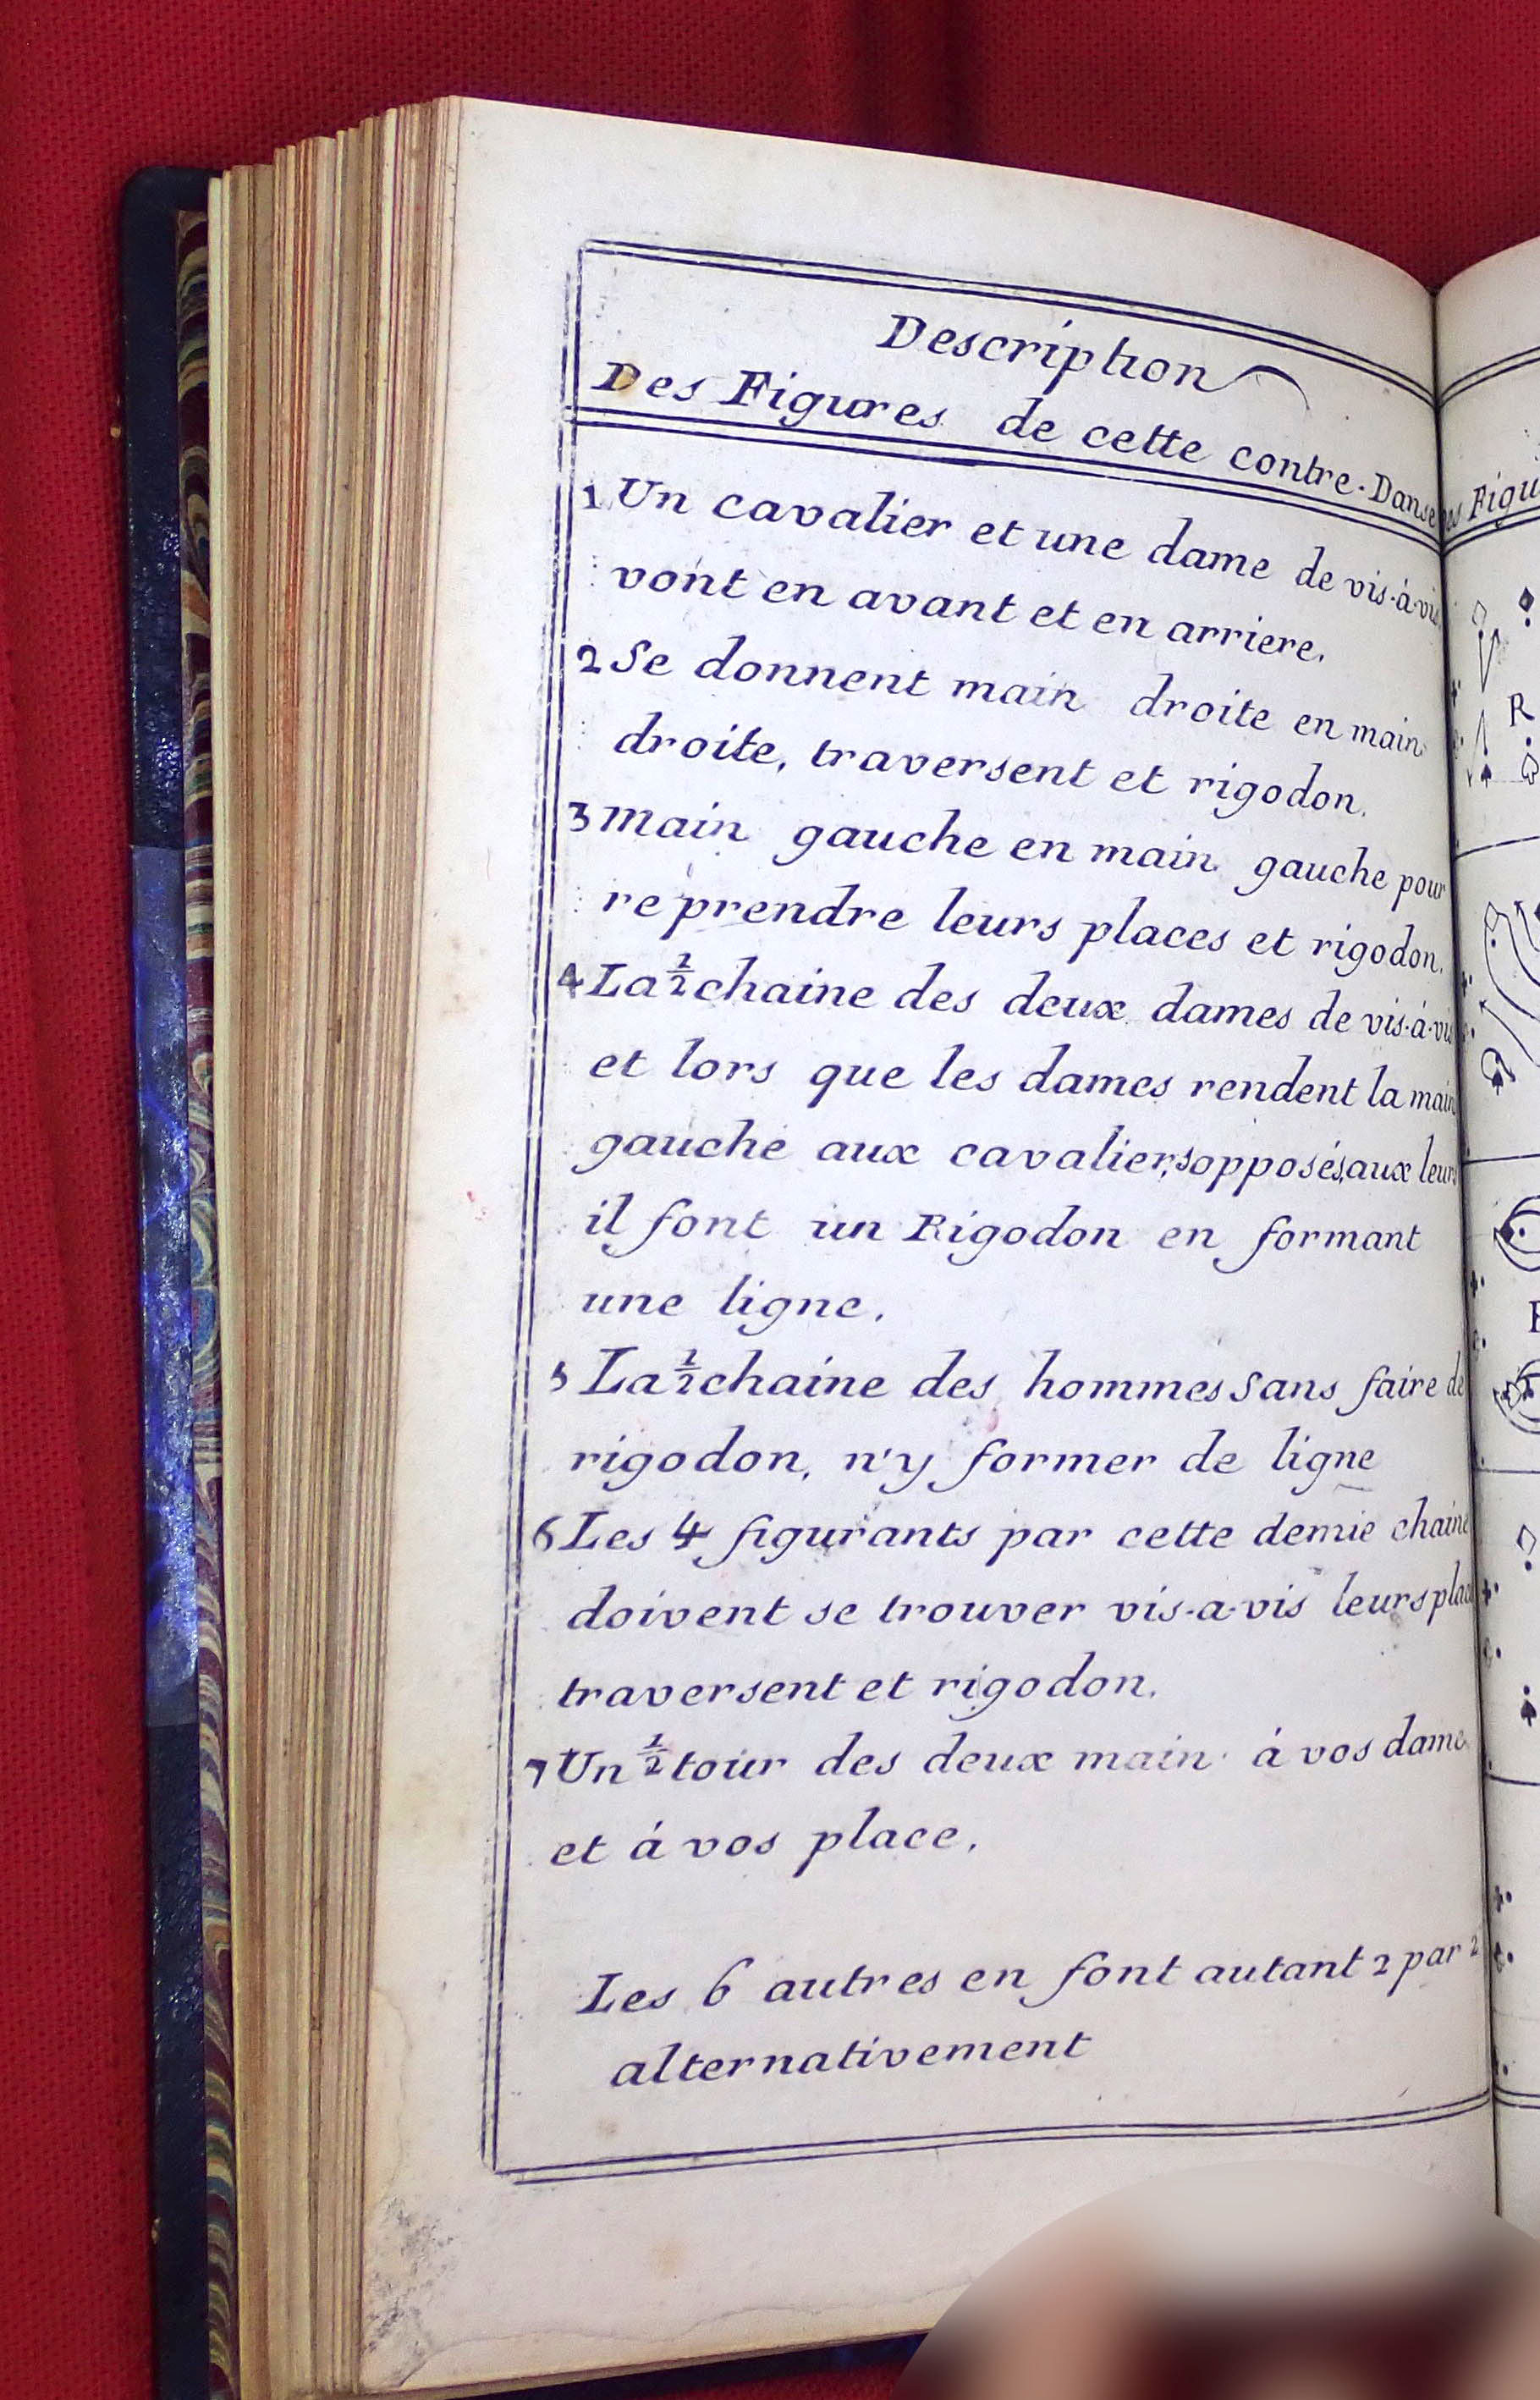 Description
Des Figures de cette contre-Danse
1 Un cavalier et une dame de vis-à-vis
vont en avant et en arriere.
2 Se donnent main droite en main
droite, traversent et rigodon.
3 main gauche en main gauche pour
reprendre leurs places et rigodon.
4 La ½ chaine des deux dames de vis-à-vis
et lors que les dames rendent la main
gauche aux cavaliers, opposés, aux leurs
il font un Rigodon en formant
une ligne.
5 La ½ chaine des hommes sans faire de
rigodon, n'y former de ligne
6 Les 4 figurants par cette demie chaine
doivent se trouver vis-a-vis leurs
traversent et rigodon.
7 Un ½ tour des deux main à vos dame
et à vos place.
Les 6 autres en font autant 2 par 2
alternativement
Figu
R